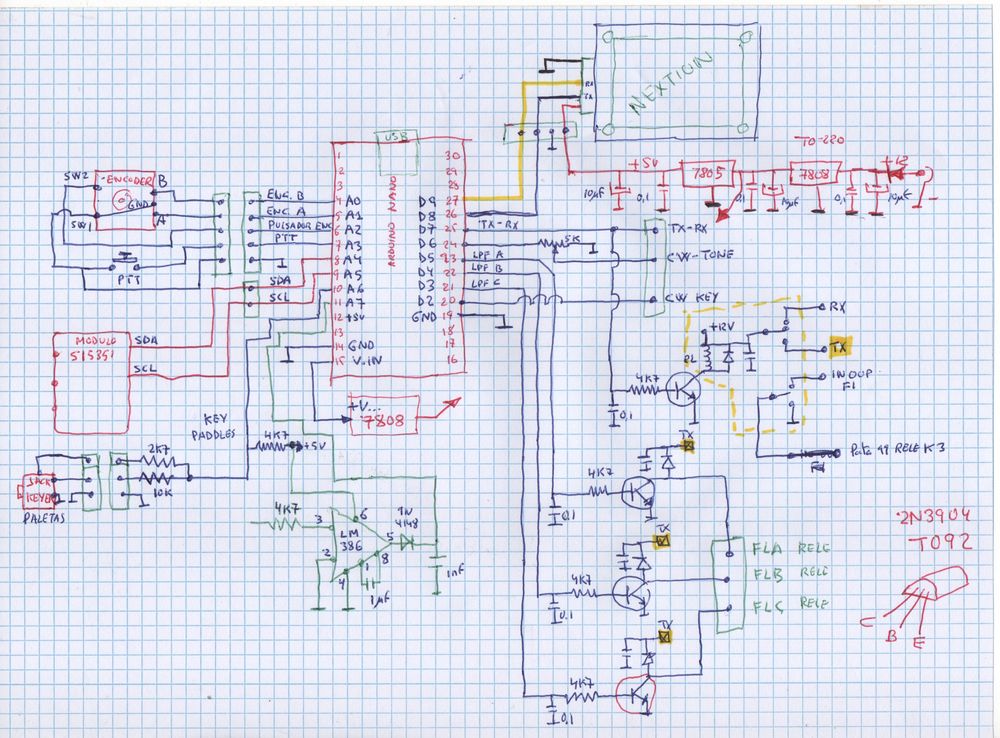 NEXTION
RX
TX
USB
NANO
ARDUINO
1
2
3
4 A0
5 A1
6 A2
7 A3
8 A4
9 A5
10 A6
11 A7
12 +5V
13
14 GND
15 V.IN
30
29
28
D9 27
D8 26
D7 25
D6 24
D5 23
D4 22
D3 21
D2 20
GND 19
18
17
16
SW2
ENCODER
B
GND
A
SW1
PTT
ENC. B
ENC. A
PULSADOR ENC
PTT
SDA
SCL
MODULO
SI5351
SDA
SCL
+V...
7808
KEY
PADDLES
4K7
+5V
2K7
10K
JACK
KEYER
PALETAS
4K7
3
6
LM
386
2
4
1
8
5
1N
4148
1µF
1nF
TO-220
+5V
7805
7808
+12
10µF
0,1
10µF
0,1
10µF
TX-RX
5K
LPF A
LPF B
LPF C
TX-RX
CW-TONE
CW KEY
+12V
RL
4K7
0,1
RX
TX
IN OUP
F1
Pata 11 RELE K3
TX
4K7
0,1
TX
4K7
0,1
TX
4K7
0,1
FLA RELE
FLB RELE
FLC RELE
2N3904
TO92
C
B
E